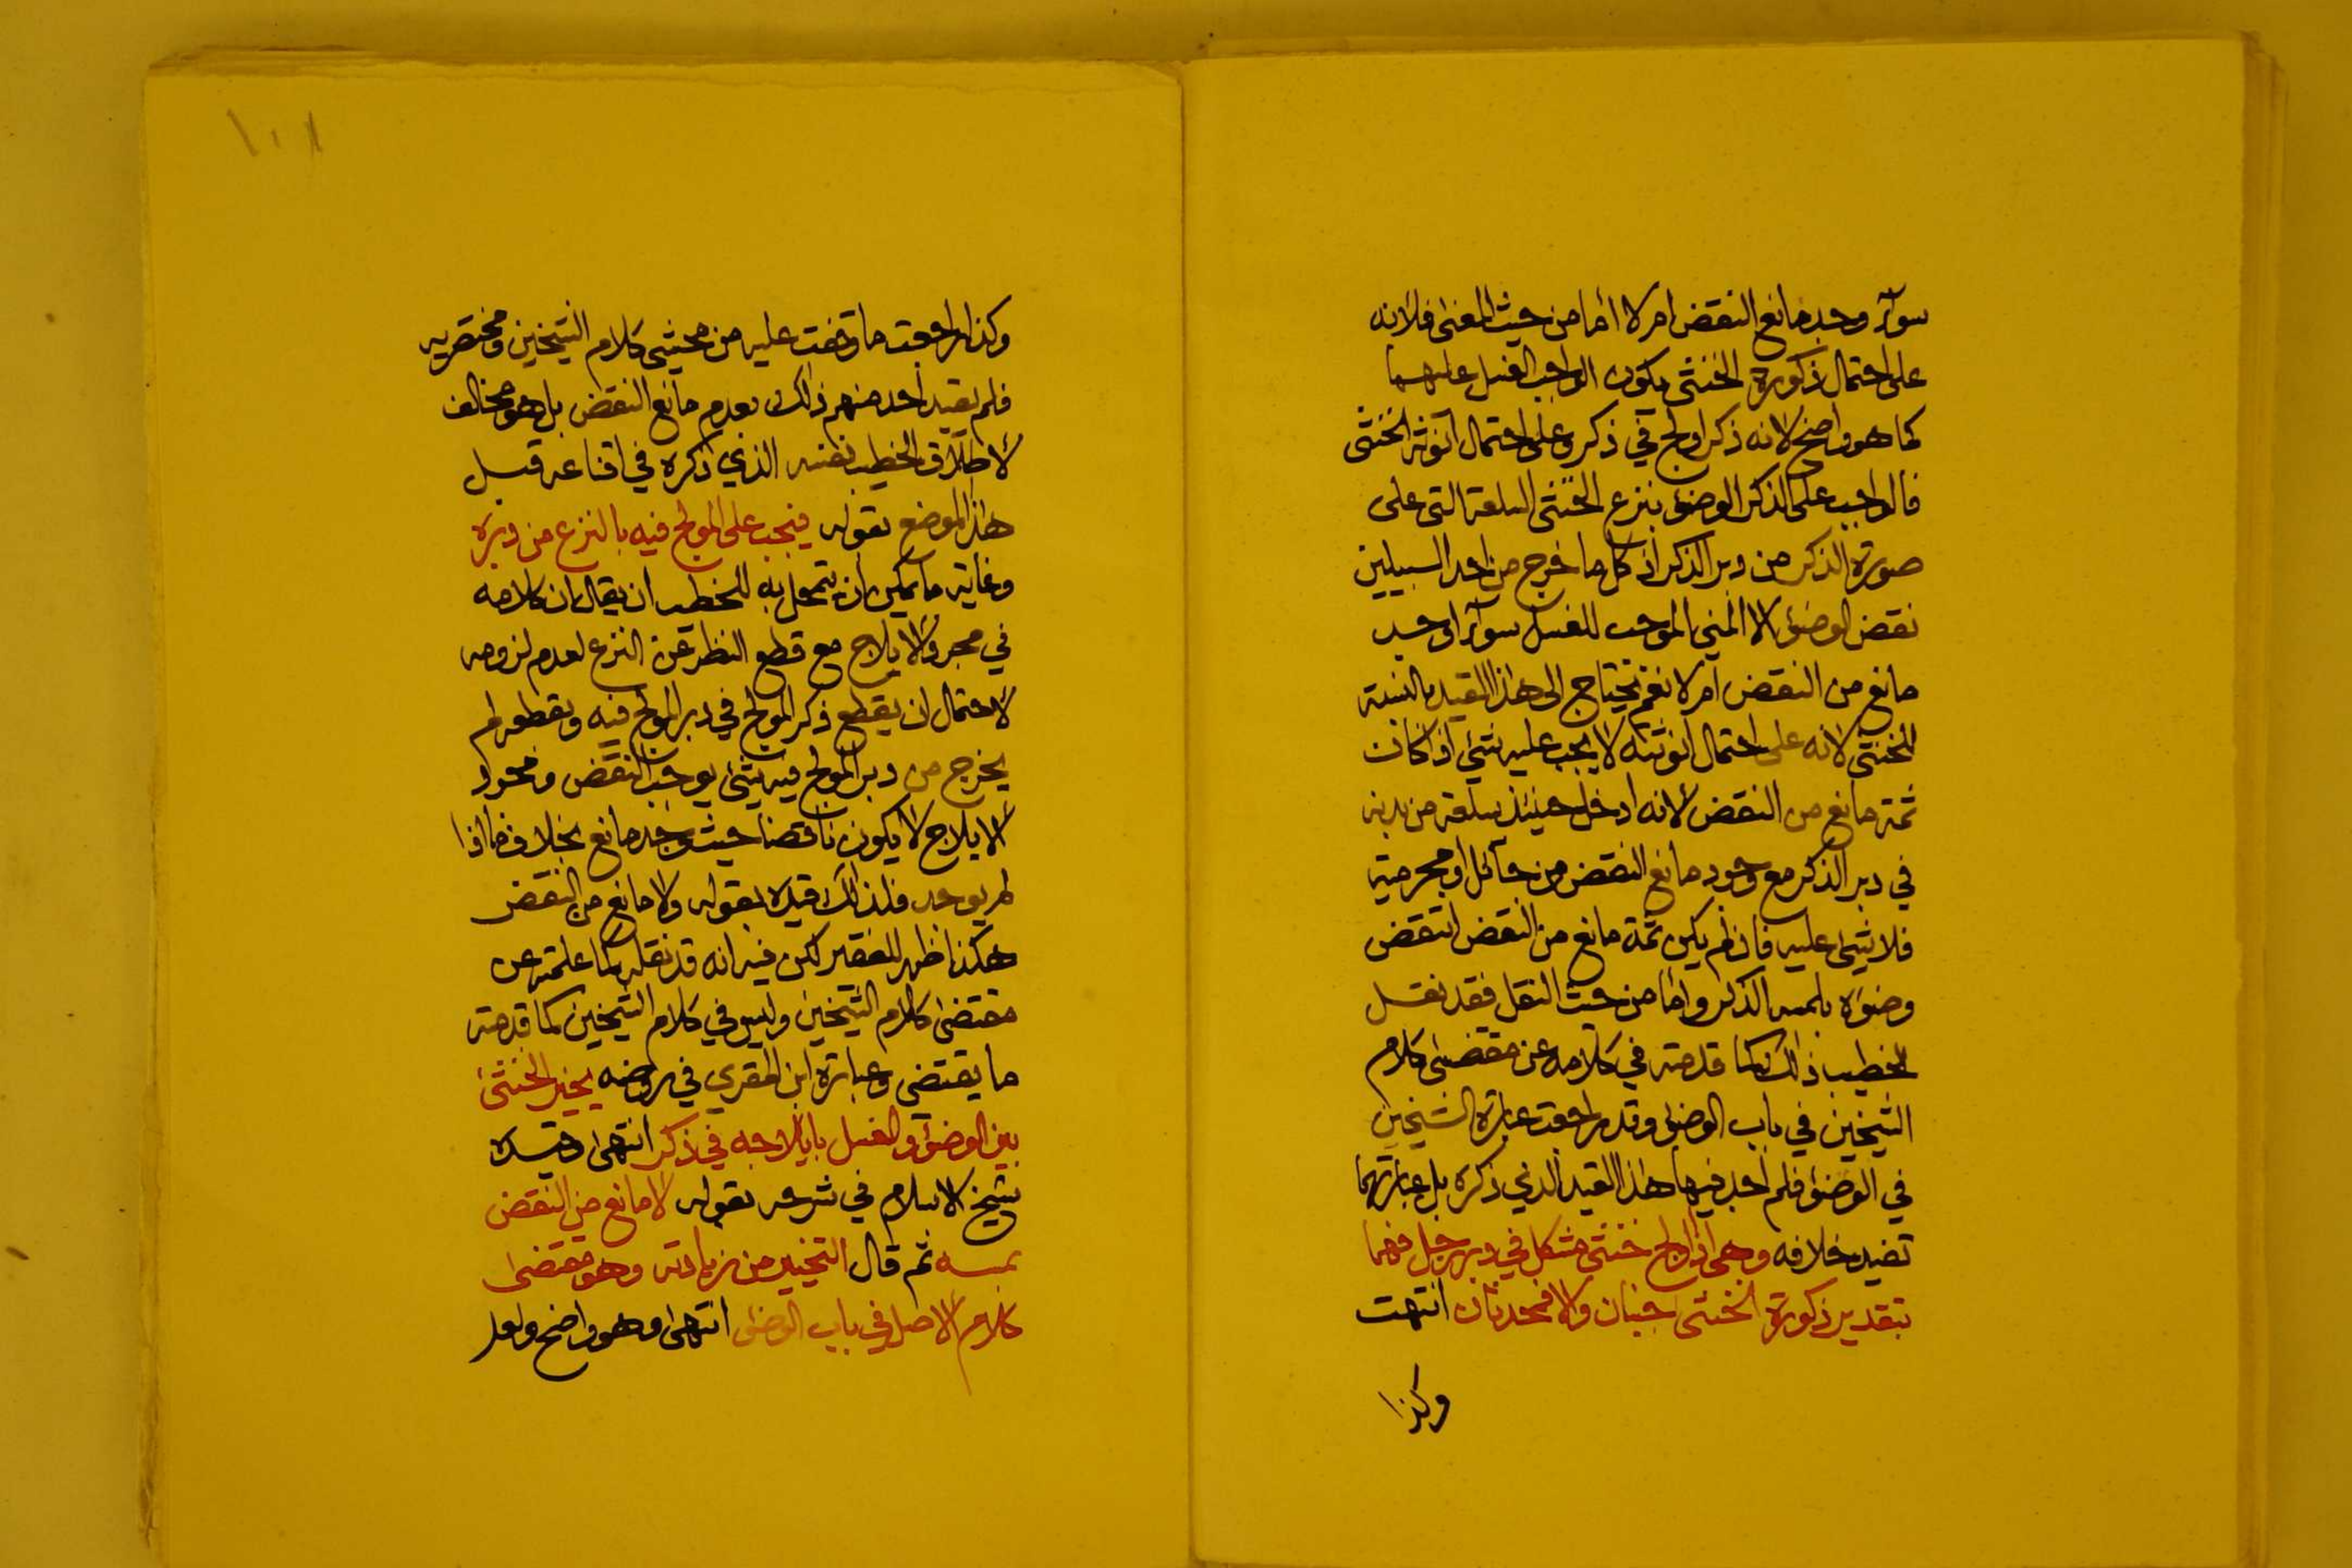 سوآء وجد مانع النقض ام لا أما من حيث المعنى فلأنه
على احتمال ذكورة الخنثى يكون الواجب الغسل عليهما
كما هو واضح لانه ذكر اولج في ذكر وعلى احتمال انوثة الخنثى
فالواجب على الذكر الوضوء بنزع الخنثى السلعة التي على
صورة الذكر من دبر الذكر اذ كل ما خرج من احد السبيلين
نقض الوضوء الا المني الموجب للغسل سوآء اوجد
مانع من النقض ام لا نعم نحتاج الى هذا القيد بالنسبة
للخنثى لانه على احتمال انوثته لا يجب عليه شيئ اذا كان
ثمة مانع من النقض لأنه ادخل حينئذ سلعة من بدنه
في دبر الذكر مع وجود مانع النقض من حآئل او محرمية
فلا شيئ عليه فان لم يكن ثمة مانع من النقض انتقض
وضوءه بلمس الذكر واما من حيث النقل فقد نقل
الخطيب ذلك كما قدمته في كلامه عن مقتضى كلام
الشيخين في باب الوضوء وقد راجعت عبارة الشيخين
في الوضوء فلم أجد فيها هذا القيد الذي ذكره بل عبارتهما
تفيد خلافه وهي اذا اولج خنثى مشكل في دبر رجل فهما
بتقدير ذكورة الخنثى جنبان والا فمحدثان انتهت
وكذا
١٠١
وكذا راجعت ما وقفت عليه من محشي كلام الشيخين ومختصريه
فلم يقيد أحد منهم ذلك بعدم مانع النقض بل هو مخالف
لأطلاق الخطيب نفسه الذي ذكره في اقناعه قبل
هذا الموضع بقوله فيجب على المولج فيه بالنزع من دبره
وغاية ما يمكن ان يتمحل به للخطيب ان يقال ان كلامه
في مجرد الايلاج مع قطع النظر عن النزع لعدم لزومه
لاحتمال ان يقطع ذكر المولج في دبر المولج فيه وبقطعه لم
يخرج من دبر المولج فيه شيئ يوجب النقض ومجرد
الايلاج لا يكون ناقضا حيث وجد مانع بخلاف ما اذا
لم يوجد فلذلك قيده بقوله ولا مانع من النقض
هكذا ظهر للفقير لكن فيه انه قد نقله كما علمته عن
مقتضى كلام الشيخين وليس في كلام الشيخين كما قدمته
ما يقتضي وعبارة ابن المقري في روضه يخير الخنثى
بين الوضوء والغسل بايلاجه في ذكر انتهى وقيده
شيخ الاسلام في شرحه بقوله لا مانع من النقض
بمسه ثم قال التخيير من زيادته وهو مقتضى
كلام الأصل في باب الوضوء انتهى وهو واضح ولعل